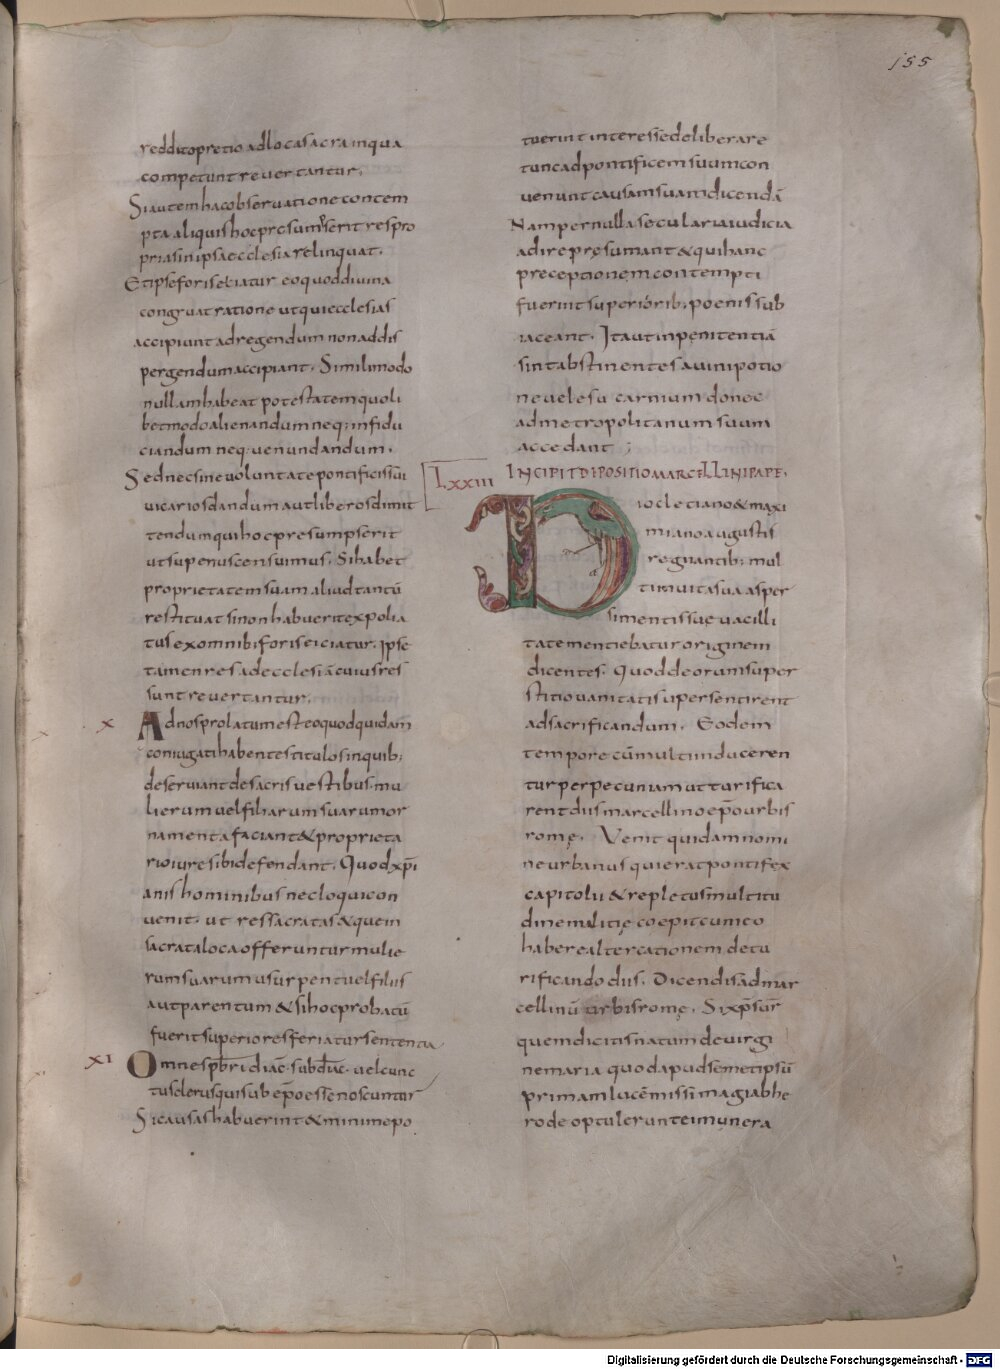 155
reddito pretio ad loca sacra in qua
competunt revertantur.
Si autem hac observatione contem
pta aliquis hoc presumserit res pro
prias in ipsa ecclesia relinquat.
Et ipse foris eiciatur eo quod divina
congruat ratione ut qui ecclesias
accipiunt ad regendum non ad dis
pergendum accipiant. Simili modo
nullam habeat potestatem quoli
bet modo alienandum neq; infidu
ciandum neq; venundandum.
Sed nec sine voluntate pontificis sui
vicarios dandum aut liberos dimit
tendum qui hoc presumpserit
ut superius censuimus. Si habet
proprietatem suam aliud tantū
restituat si non habuerit expolia
tus ex omnib; foris eiciatur. Ipse
tamen res ad ecclesiā cuius res
sunt revertantur.
X Ad nos prolatum est eo quod quidam
coniugati habentes titulos in quib;
deserviant de sacris vestibus mu
lierum vel filiarum suarum or
namenta faciant & proprieta
rio iure sibi defendant. Quod xp̄i
anis hominibus nec loqui con
venit. ut res sacratas & quem
sacrata loca offeruntur mulie
rum suarum usurpent vel filiis
aut parentum & si hoc probatū
fuerit superiores feriatur sententia
XI Omnes p̄bri diāc. subdiāc. vel cunc
tus clerus qui sub ep̄o esse noscuntur
Si causas habuerint & minime po
tuerint inter esse deliberare
tunc ad pontificem suum con
venunt causam suam dicendā
Nam per nulla secularia iudicia
adire presumant & qui hanc
preceptionem contempti
fuerint superiorib; poenis sub
iaceant. Ita ut in penitentiā
sint abstinentes a vini potio
ne vel esu carnium donec
ad metropolitanum suum
accedant;
LXXIII INCIPIT DIPOSITIO MARCELLINI PAPE.
Diocletiano & maxi
miano augustis
regnantib; mul
ti in vita sua asper
simentis sue vacilli
tate mentiebatur originem
dicentes. Quod deorum super
stitio vanitatis persentirent
ad sacrificandum. Eodem
tempore cūm multi induceren
tur per pecuniam ut turifica
rent diis marcellino ep̄o urbis
romę. Venit quidam nomi
ne urbanus qui erat pontifex
capitolii & repletus multitu
dine malitię coepit cum eo
habere altercationem de tu
rificando diis. Dicendis ad mar
cellinū urbis romę. Si xp̄s sūr
quem dicitis natum de virgi
ne maria quod apud semetipsū
primam lucēm issi magi ab he
rode optulerunt ei munera
Digitalisierung gefördert durch die Deutsche Forschungsgemeinschaft - DFG